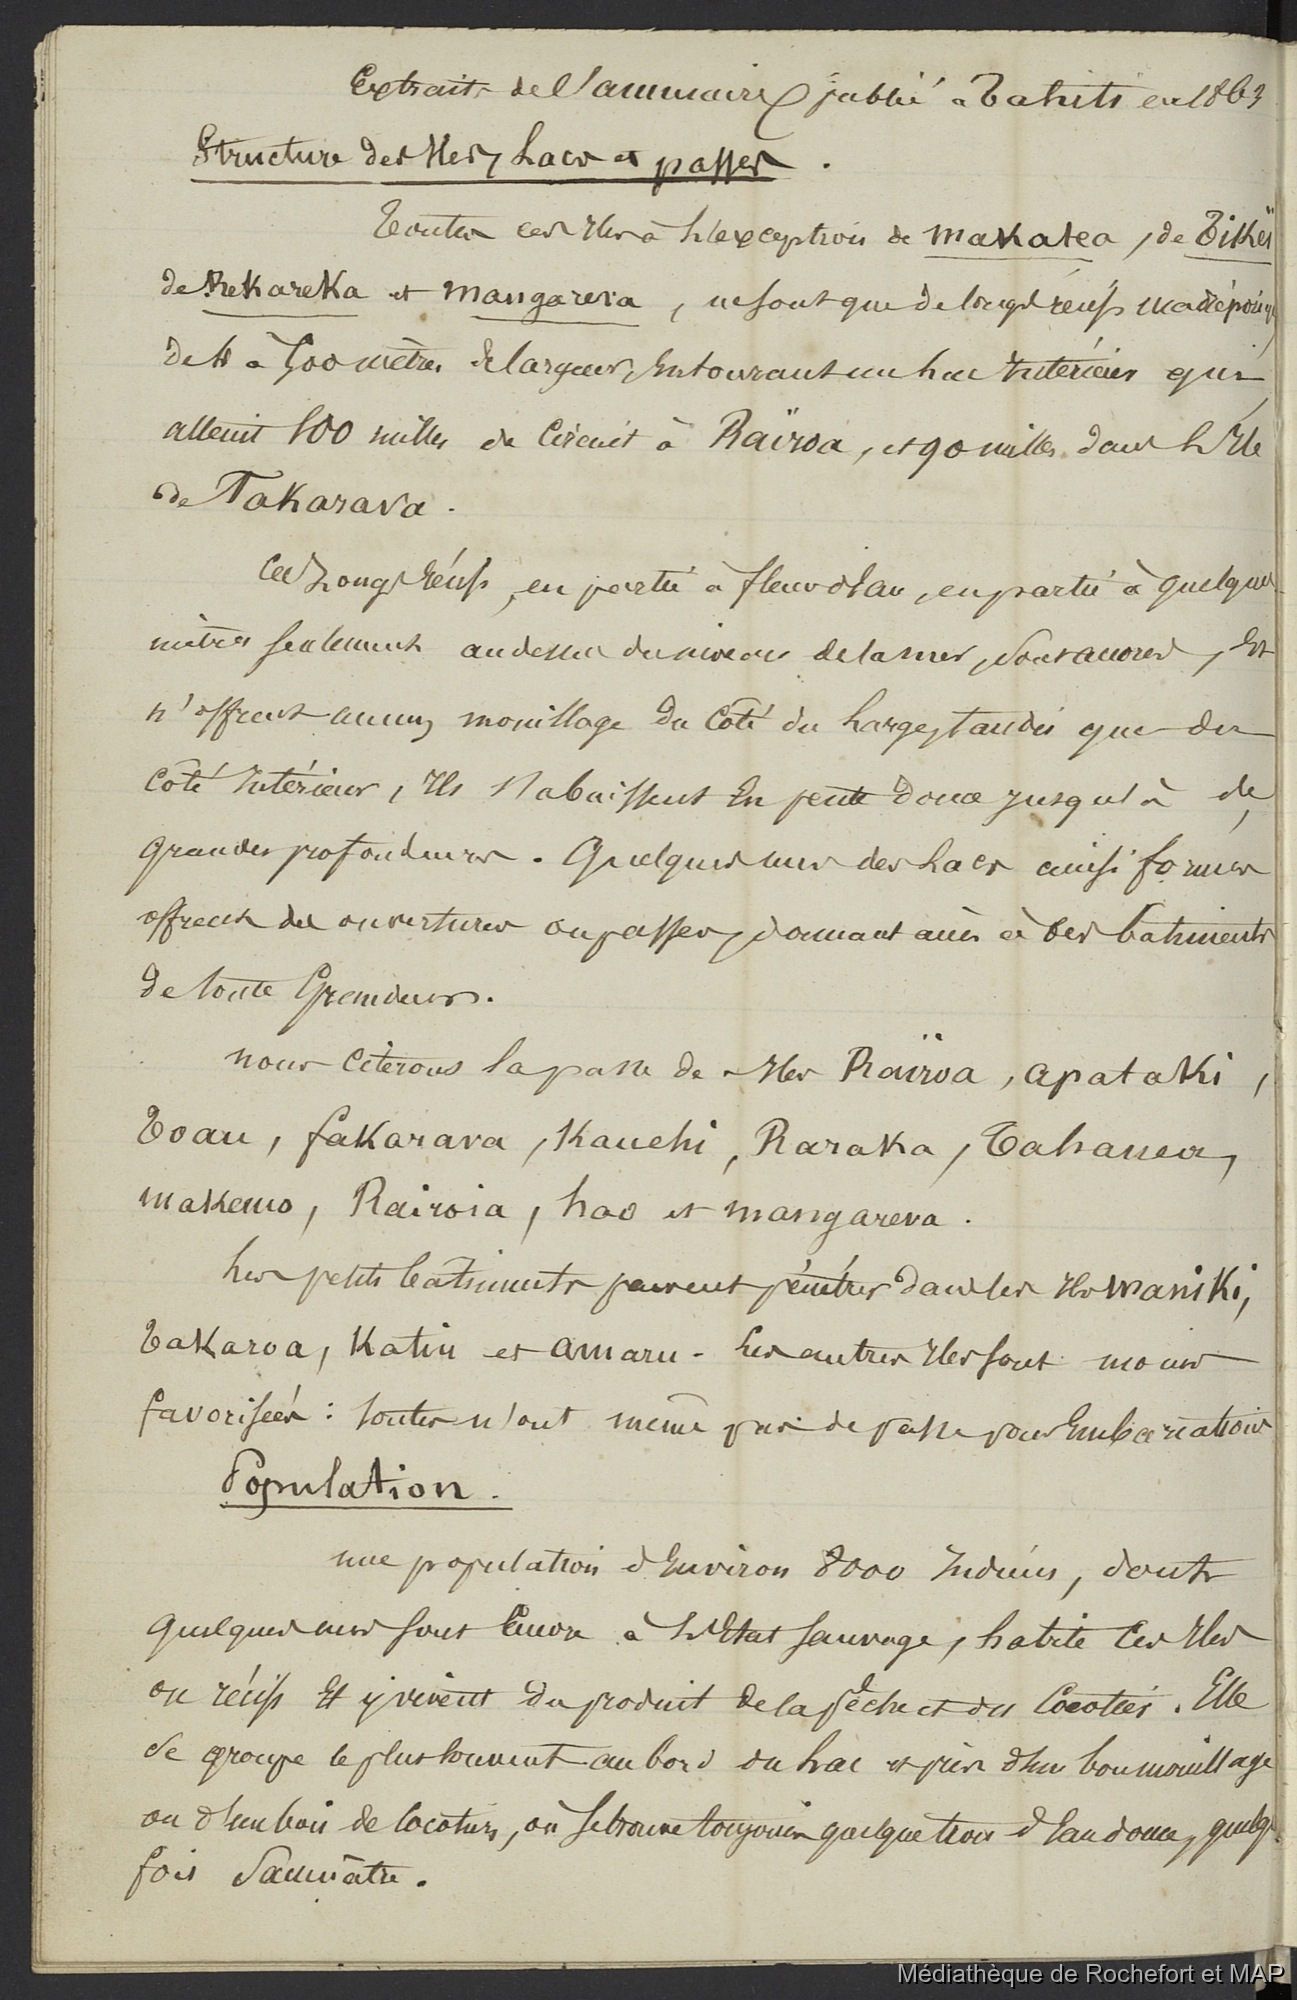 Extraits de l'annuaire publié à Tahiti en 1863
Structure des Iles, Lacs et passes.
Toutes ces Iles à l'exception de Makatea, de Tikeï
de Rekareka et Mangareva, ne sont que de longs récifs madrépori
de 4 à 500 mètres de largeur, Entourant un Lac Intérieur qui
atteint 100 milles de Circuit à Raïroa, et 90 milles dans L'Ile
de Fakarava.
Ces Longs Récifs, en partie à fleur d'Eau, en partie à quelques
mètres seulement au dessus du niveau de la mer, sont accores, Et
n'offrent aucun mouillage du Côté du Large, tandis que du
Côté Intérieur, Ils s'abaissent En pente douce jusqu'à de
grandes profondeurs. Quelques unes des Lacs ainsi formés
offrent des ouvertures ou passes, donnant accès à des batiments
de toute Grandeur.
Nous Citerons la passe de Iles Raïroa, Apataki,
Toau, Fakarava, Kauehi, Raraka, Tahanea,
Makemo, Rairoia, Hao et Mangareva.
Les petits bâtiments peuvent pénétrer dans les Iles Maniki,
Takaroa, Katiu et Amaru. Les autres Iles sont moins
favorisées : toutes n'ont même pas de passe pour Embarcations
Population.
Une population d'Environ 8000 Indiens, dont
quelques uns sont Encore à L'Etat sauvage, habite Ces Iles
ou récifs Et y vivent du produit de la pêche et des Cocotiers. Elle
se groupe le plus souvent au bord du Lac et près d'un bon mouillage
ou d'un bois de Cocotiers, où se trouve toujours quelque trou d'Eau douce, quelq
fois Saumâtre.
Médiathèque de Rochefort et MAP